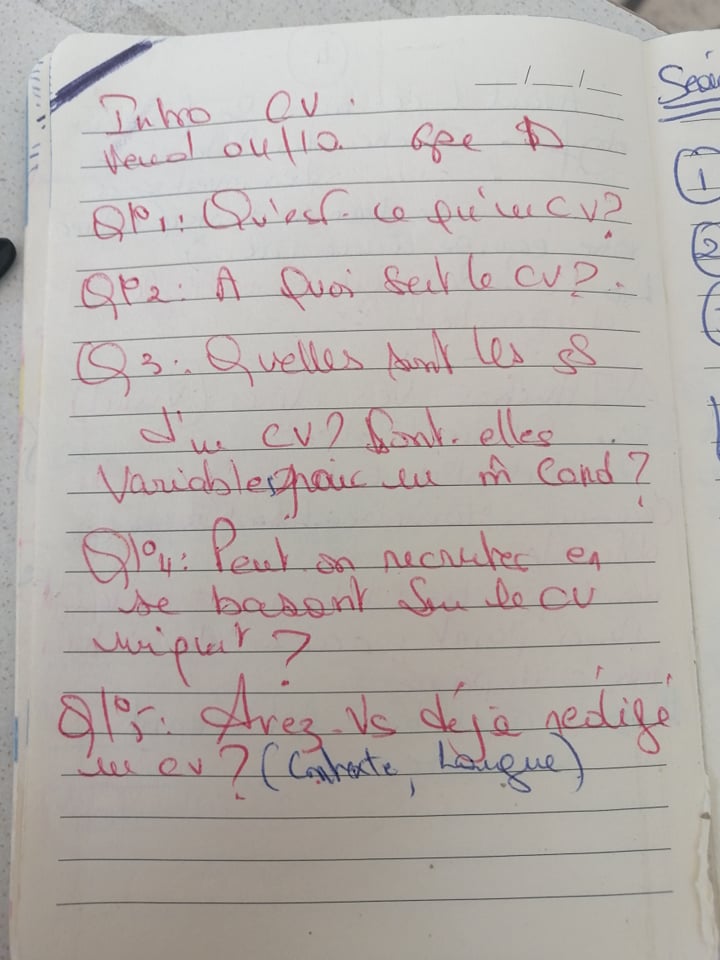 Intro CV.
Vend 04/10 Gpe D
QP1: Qu'est-ce qu'un CV?
QP2: A Quoi sert le CV?
Q3: Quelles sont les
d'un CV? Sont-elles
Variables pour un m̂ Cand?
QP4: Peut on recruter en
se basant sur le CV
uniqut?
QP5: Avez-Vs déjà rédigé
un CV? (Contexte, Langue)
Séan
1
2